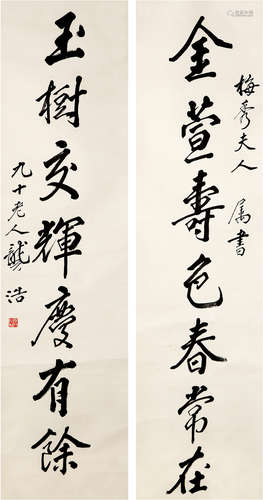 金萱壽色春常在
梅秀夫人
屬書
玉樹交輝慶有餘
九十老人龔浩